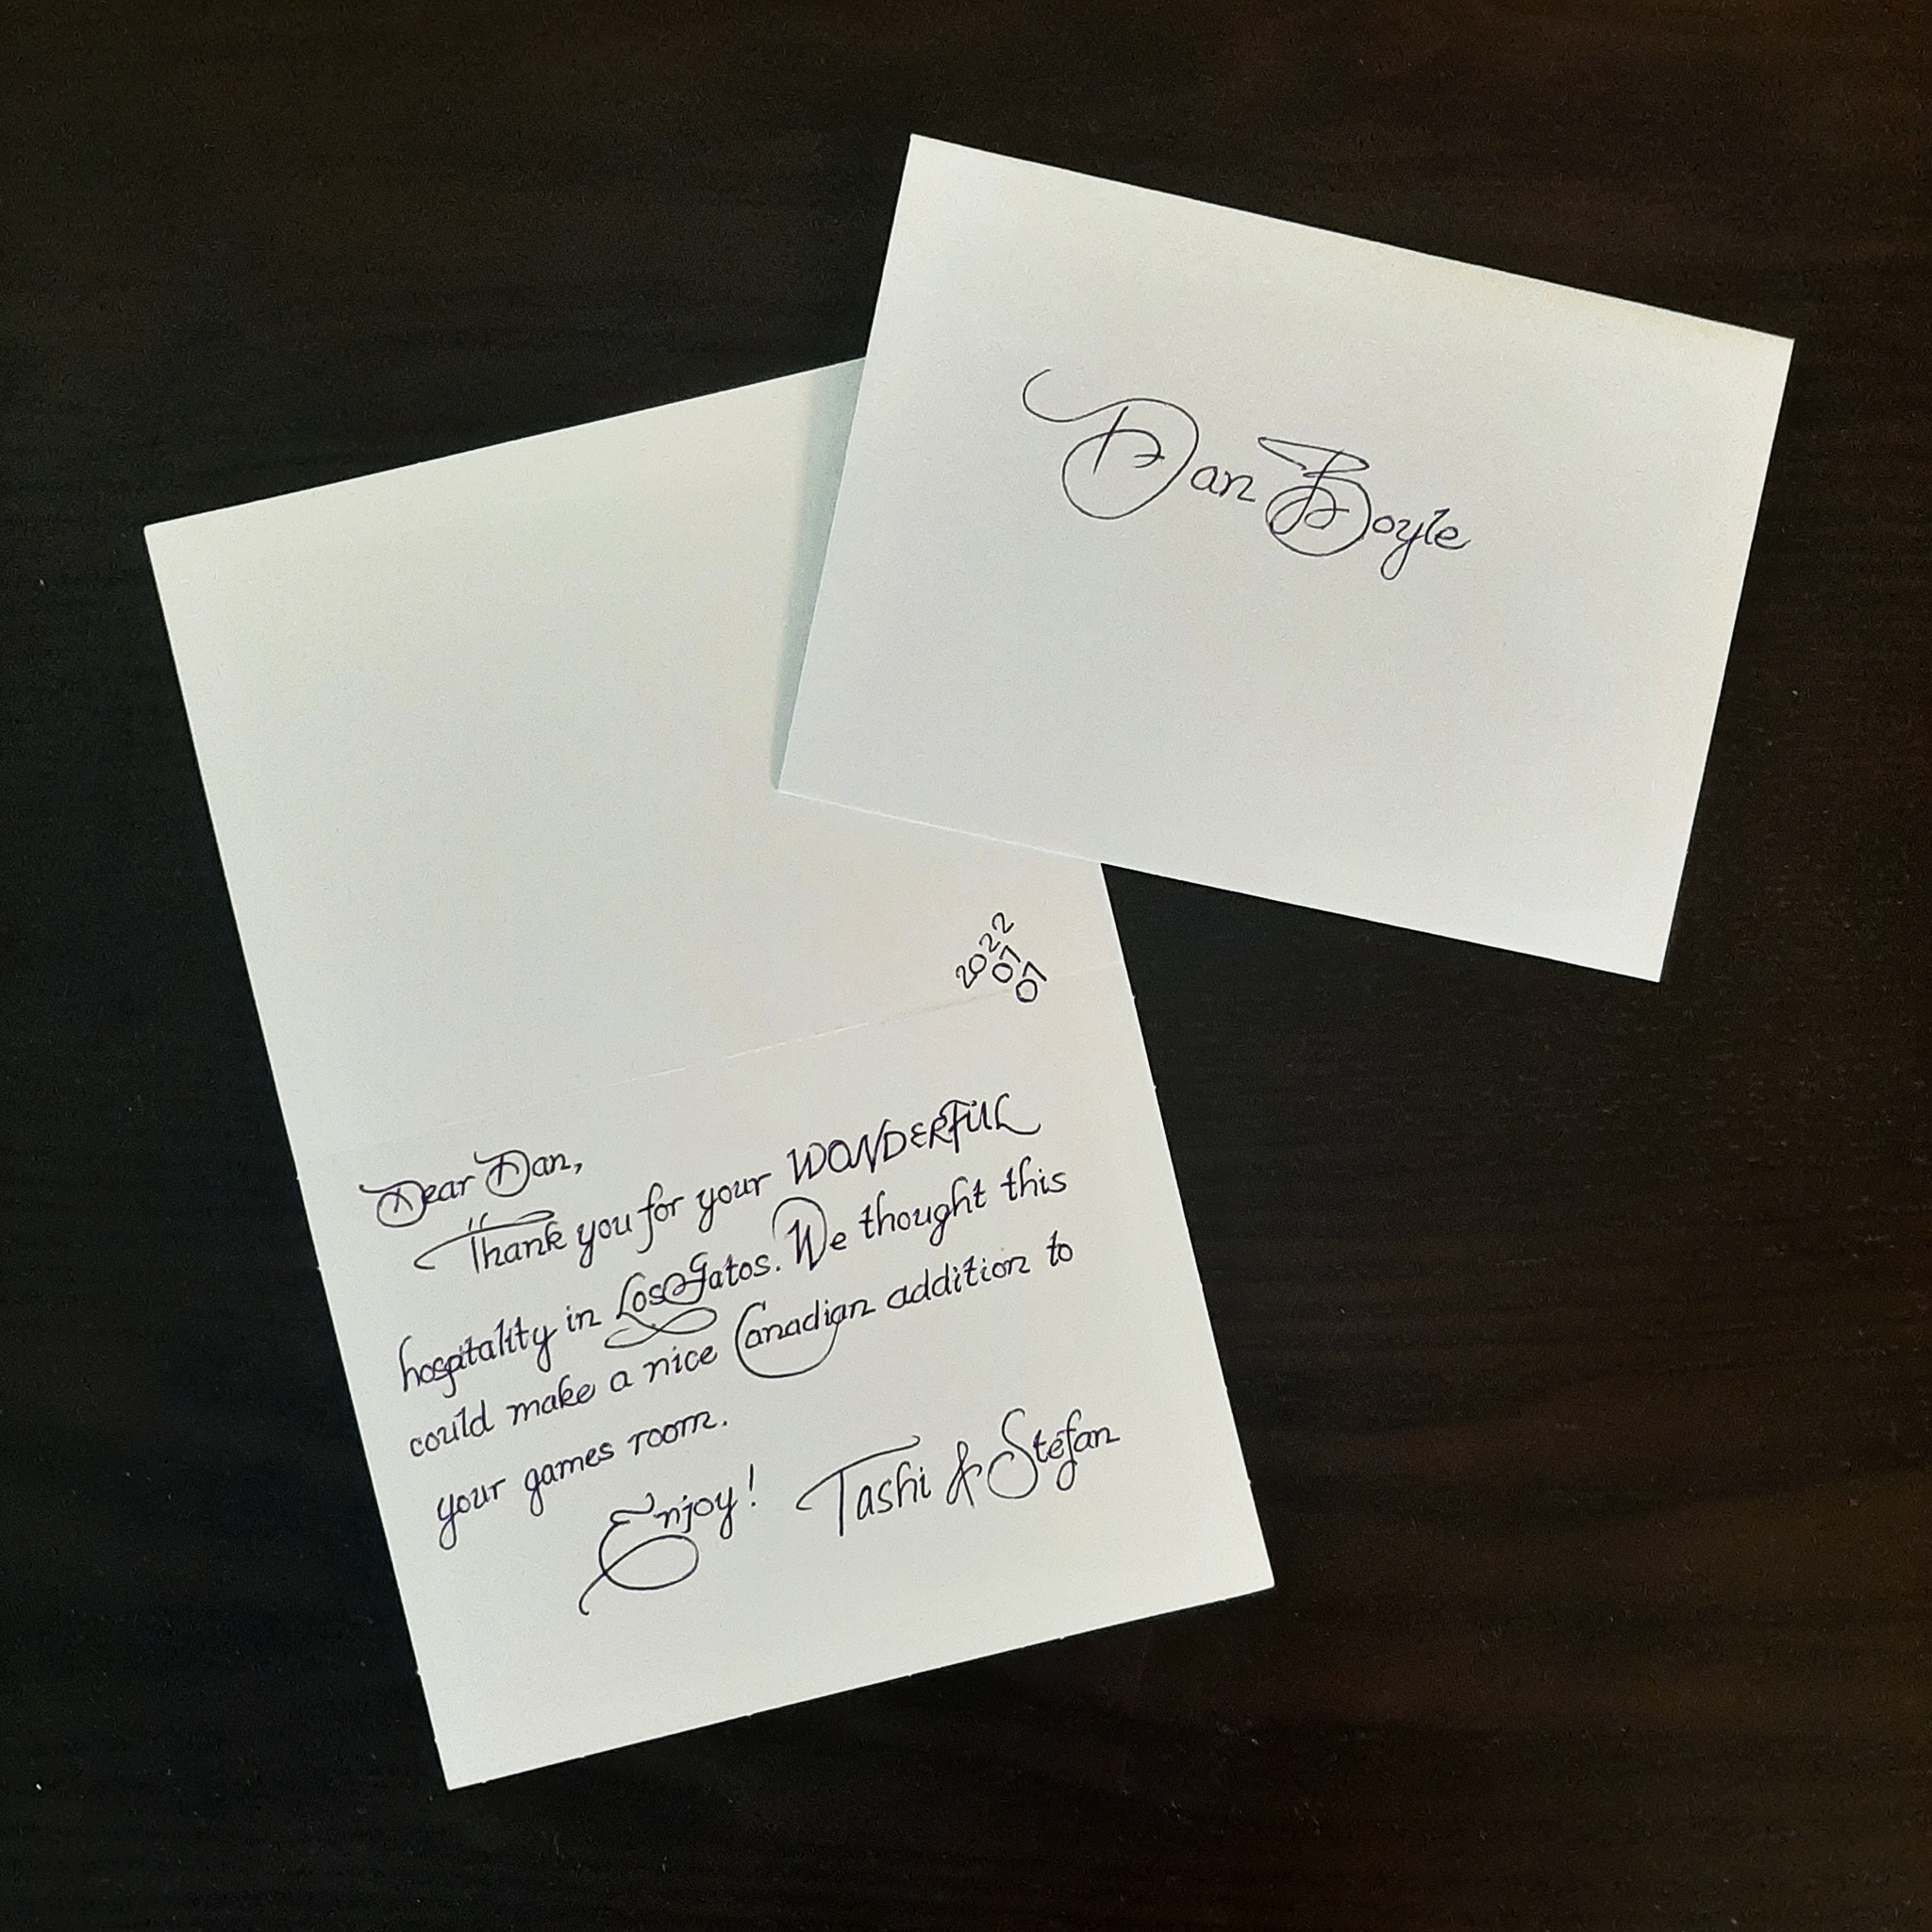 Dan Boyle
2022
07
07
Dear Dan,
Thank you for your WONDERFUL
hospitality in Los Gatos. We thought this
could make a nice Canadian addition to
your games room.
Enjoy! Tashi & Stefan